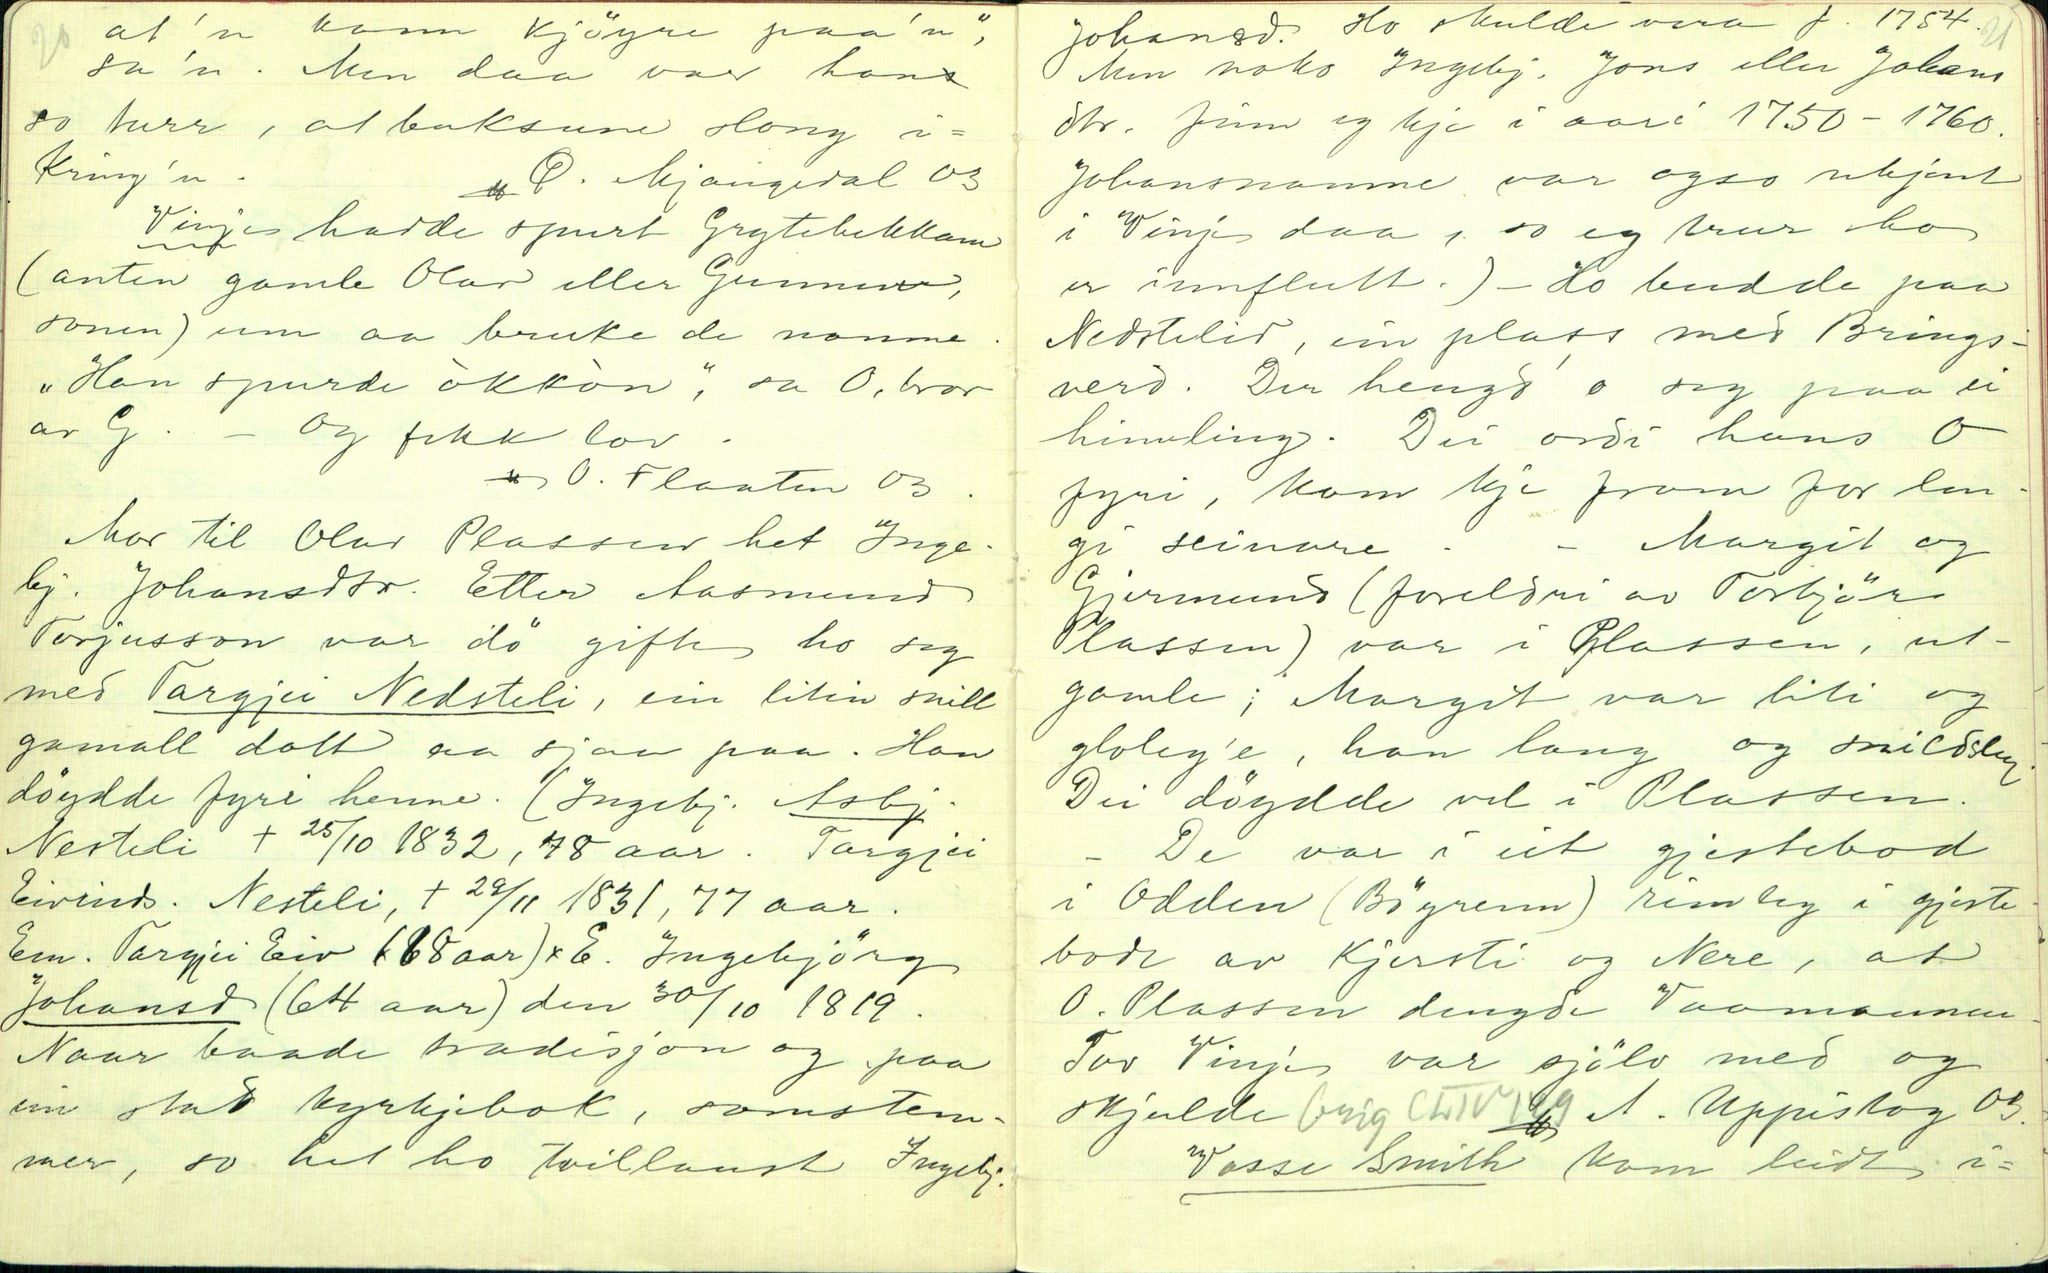 20
at'n kann kjöyre paa'n",
sa'n. Men daa var han
so turr, at buksune slong i=
kring'n.
O. Mjaugedal 03
Vinje hadde spurt Grytebekkam
(anten gamle Olav eller Gunnar,
sonen) um aa bruke de namne.
"Han spurde òkkòn", sa O, bror
av G. – Og fekk lov.
O. Flaaten 03.
Mor til Olav Plassen het Inge-
bj. Johansdtr. Etter Aasmund
Torjusson var dö gifte ho seg
med Targjei Nedsteli, ein liten snill
gamall dott aa sjaa paa. Han
döydde fyri henne. (Ingebj. Asbj.
Nesteli + 25/10 1832, 78 aar. Targjei
Eivinds. Nesteli, + 29/11 1831, 77 aar.
Em. Targjei Eiv (68 aar) x E. Ingebjörg
Johansd (64 aar) den 30/10 1819.
Naar baade tradisjon og paa
ein stad kyrkjebok, samstem-
mer, so het ho tvillaust Ingebj.
21
Johansd. Ho skulde vera f. 1754.
Men noko Ingebj. Jons eller Johans
dtr. finn eg kje i aari 1750-1760.
Johansnamne var ogso ukjent
i Vinje daa, so eg trur ho
er innflutt.) – Ho budde paa
Nedstelid, ein plass med Brings-
verd. Der hengd' o seg paa ei
himling. Dei ordi hans O
fyri, kom kje fram for len-
gi seinare. – Margit og
Gjermund (foreldri av Torbjör
Plassen) var i Plassen, ut-
gamle; Margit var liti og
gloleg'e, han lang og snildsleg.
Dei döydde vel i Plassen.
– De var i eit gjestebod
i Odden (Böygrenn) rimeleg i gjeste-
bode av Kjersti og Nere, at
O. Plassen dengde Vaamannen.
Tov Vinje var sjölv med og
skjulde Orig CLIV 199 A. Uppistog 03.
Vasse Smith kom leidt i=